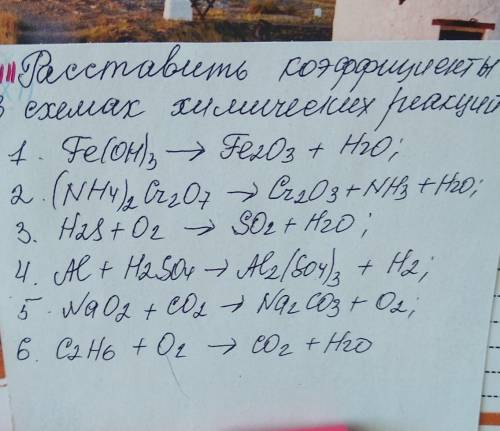 Расставить коэффициенты
в схемах химических реакций
1. Fe(OH)3 → Fe2O3 + H2O;
2. (NH4)2Cr2O7 → Cr2O3 + NH3 + H2O;
3. H2S + O2 → SO2 + H2O;
4. Al + H2SO4 → Al2(SO4)3 + H2;
5. NaO2 + CO2 → Na2CO3 + O2;
6. C2H6 + O2 → CO2 + H2O